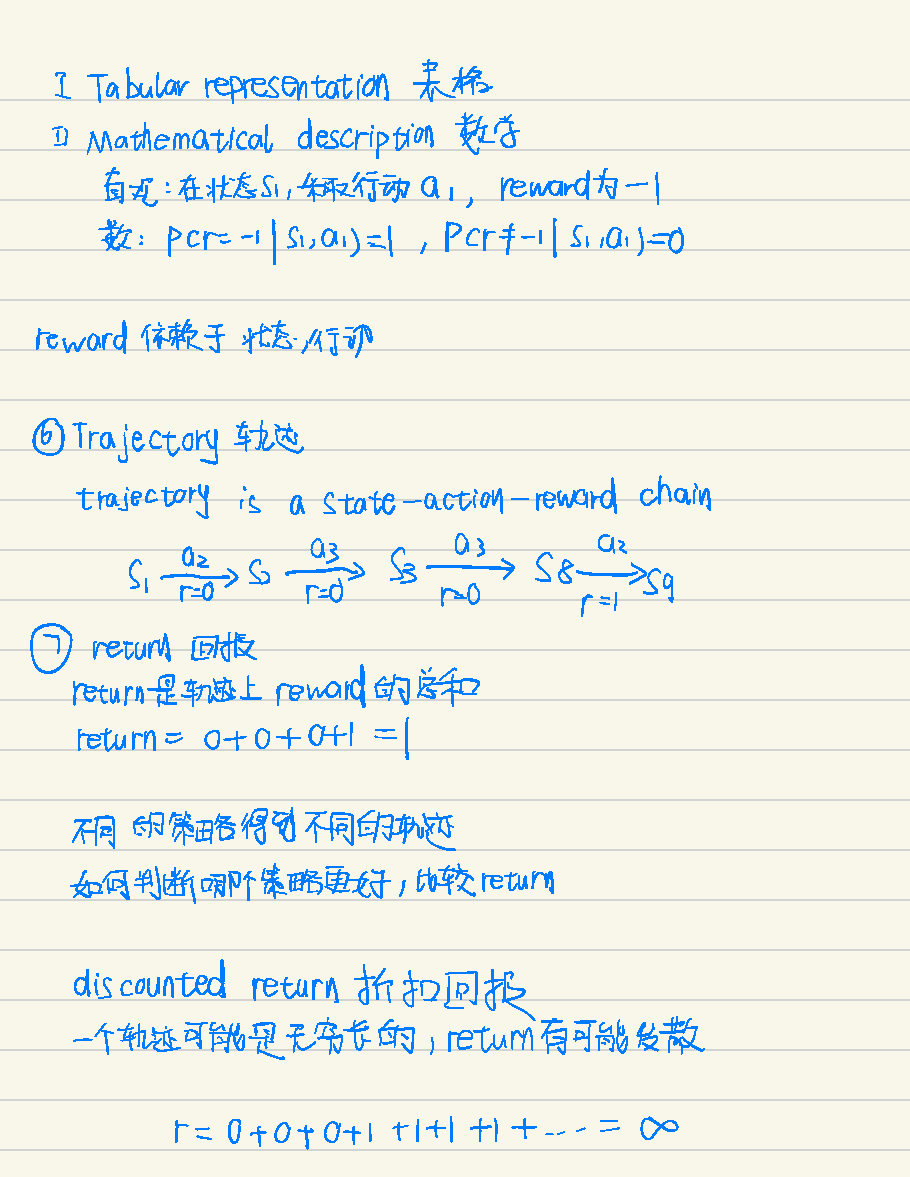 I Tabular representation 表格
II Mathematical description 数学
直观:在状态s₁,采取行动a₁, reward为-1
数: p(r=-1|s₁,a₁)=1, p(r≠-1|s₁,a₁)=0
reward 依赖于 状态,行动
⑥ Trajectory 轨迹
trajectory is a state-action-reward chain
a₂ a₃ a₃ a₂
S₁ → S₂ → S₃ → S8 → S9
r=0 r=0 r=0 r=1
⑦ return 回报
return是轨迹上 reward的总和
return = 0+0+0+1 =1
不同的策略得到不同的轨迹
如何判断哪个策略更好,比较return
discounted return 折扣回报
一个轨迹可能是无穷长的,return有可能发散
r= 0+0+0+1+1+1+1+...=∞